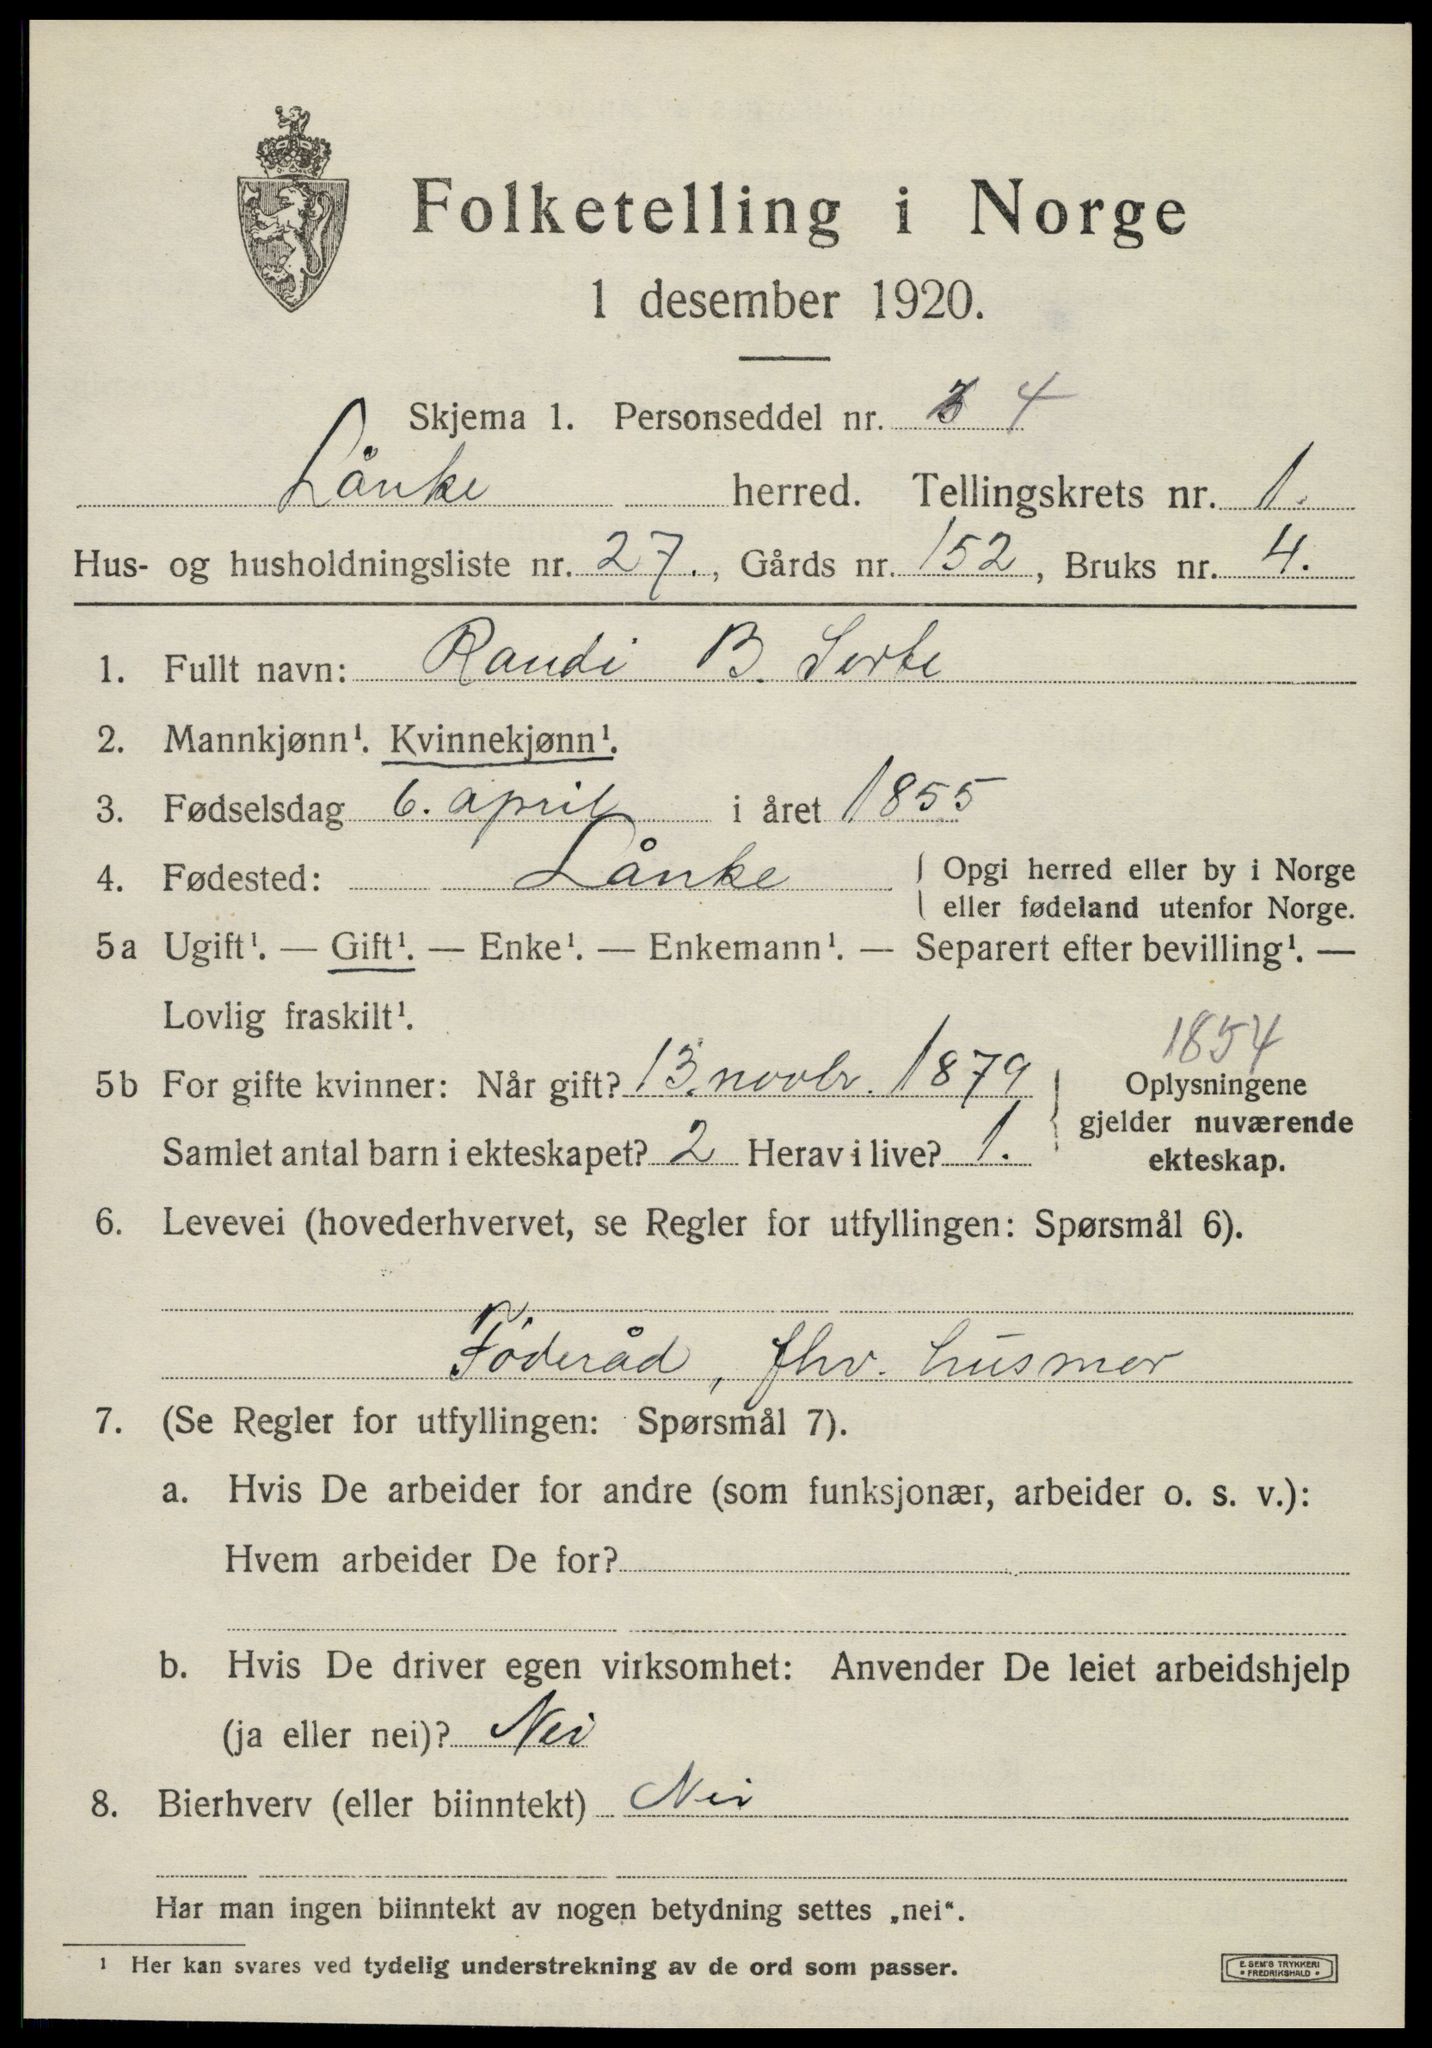 Folketelling i Norge
1 desember 1920.
Skjema 1. Personseddel nr. 3 4
Lånke herred. Tellingskrets nr. 1.
Hus- og husholdningsliste nr. 27., Gårds nr. 152, Bruks nr. 4.
1. Fullt navn: Randi B. Sorte
2. Mannkjønn¹. Kvinnekjønn¹.
3. Fødselsdag 6. april i året 1855
4. Fødested: Lånke { Opgi herred eller by i Norge
eller fødeland utenfor Norge.
5a Ugift¹. — Gift¹. — Enke¹. — Enkemann¹. — Separert efter bevilling¹. —
Lovlig fraskilt¹.
1854
5b For gifte kvinner: Når gift? 13. novbr. 1879 } Oplysningene
gjelder nuværende
Samlet antal barn i ekteskapet? 2 Herav i live? 1. ekteskap.
6. Levevei (hovederhvervet, se Regler for utfyllingen: Spørsmål 6).
Föderåd, fhv. husmor
7. (Se Regler for utfyllingen: Spørsmål 7).
a. Hvis De arbeider for andre (som funksjonær, arbeider o. s. v.):
Hvem arbeider De for?
b. Hvis De driver egen virksomhet: Anvender De leiet arbeidshjelp
(ja eller nei)? Nei
8. Bierhverv (eller biinntekt) Nei
Har man ingen biinntekt av nogen betydning settes „nei“.
¹ Her kan svares ved tydelig understrekning av de ord som passer.
E. SEM'S TRYKKERI
• FREDRIKSHALD •